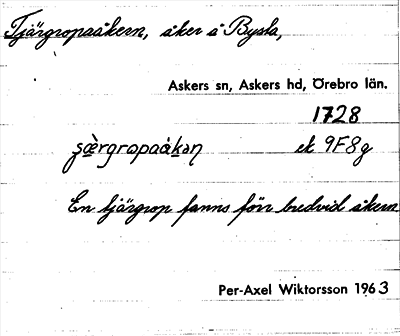 Tjärgropaåkern, åker å Bysta,
Askers sn, Askers hd, Örebro län.
1728
ek 9F8g
En tjärgrop fanns förr bredvid åkern
Per-Axel Wiktorsson 1963